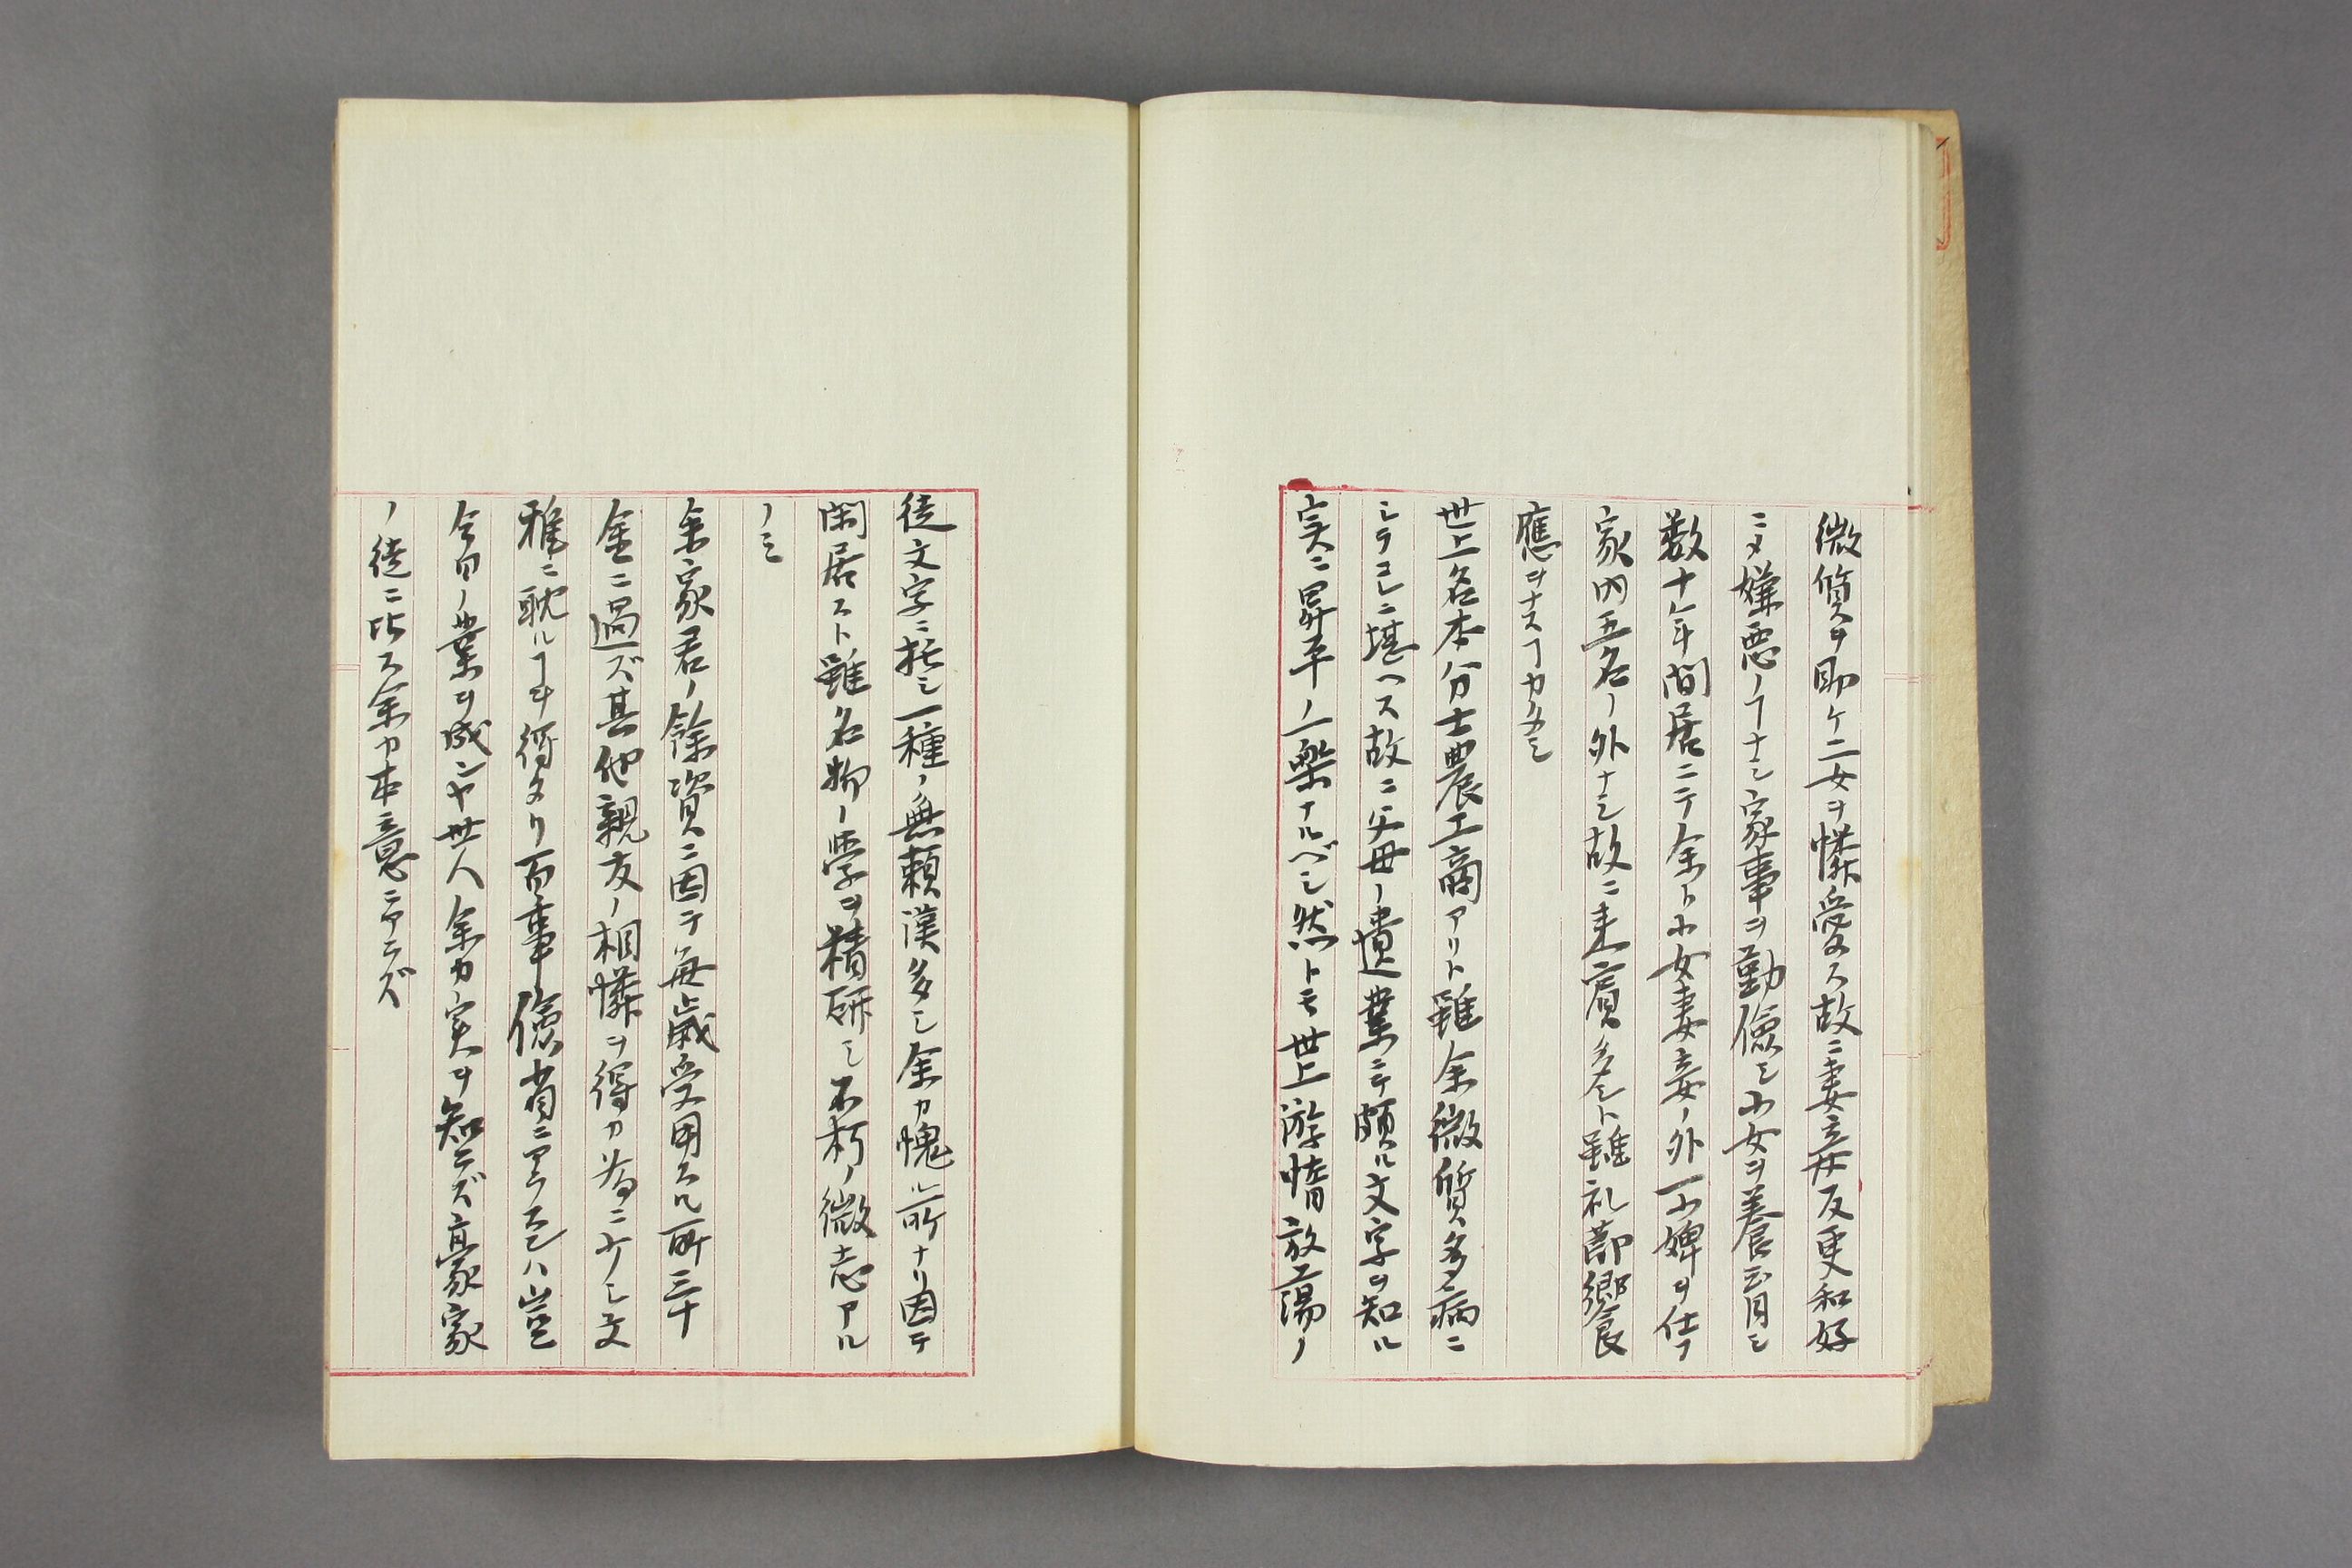 微質ヲ助ケ二女ヲ憐愛ス故ニ妻妾反更和好
ニメ嫌悪ノヿナシ家事ヲ勤儉シ小女ヲ養育シ
数十年間居ニテ余ト小女妻妾ノ外一小婢ヲ仕フ
家内五名ノ外ナシ故ニ来賓多シト雖礼節郷食
應ヲナスヿカタシ
世上名本分士農工商アリト雖余微質多病ニ
シテコレニ堪ヘス故ニ父母ノ遺業ニテ頗ル文字ヲ知ル
実ニ昇平ノ一樂ナルベシ然トモ世上游惰放蕩ノ
徒文字ニ托シ一種ノ無頼漢多シ余カ愧ル所ナリ因テ
閑居スト雖名物ノ學ヲ精研シ不朽ノ微志アル
ノミ
余家君ノ餘資ニ因テ毎歳受用スル所三十
金ニ過ズ其他親友ノ相憐ヲ得カ為ニ少シ文
雅ニ耽ルヿヲ得タリ百事儉省ニアラスンハ豈
今日ノ業ヲ成ンヤ世人余カ実ヲ知ラズ豪家
ノ徒ニ比ス余カ本意ニアラズ